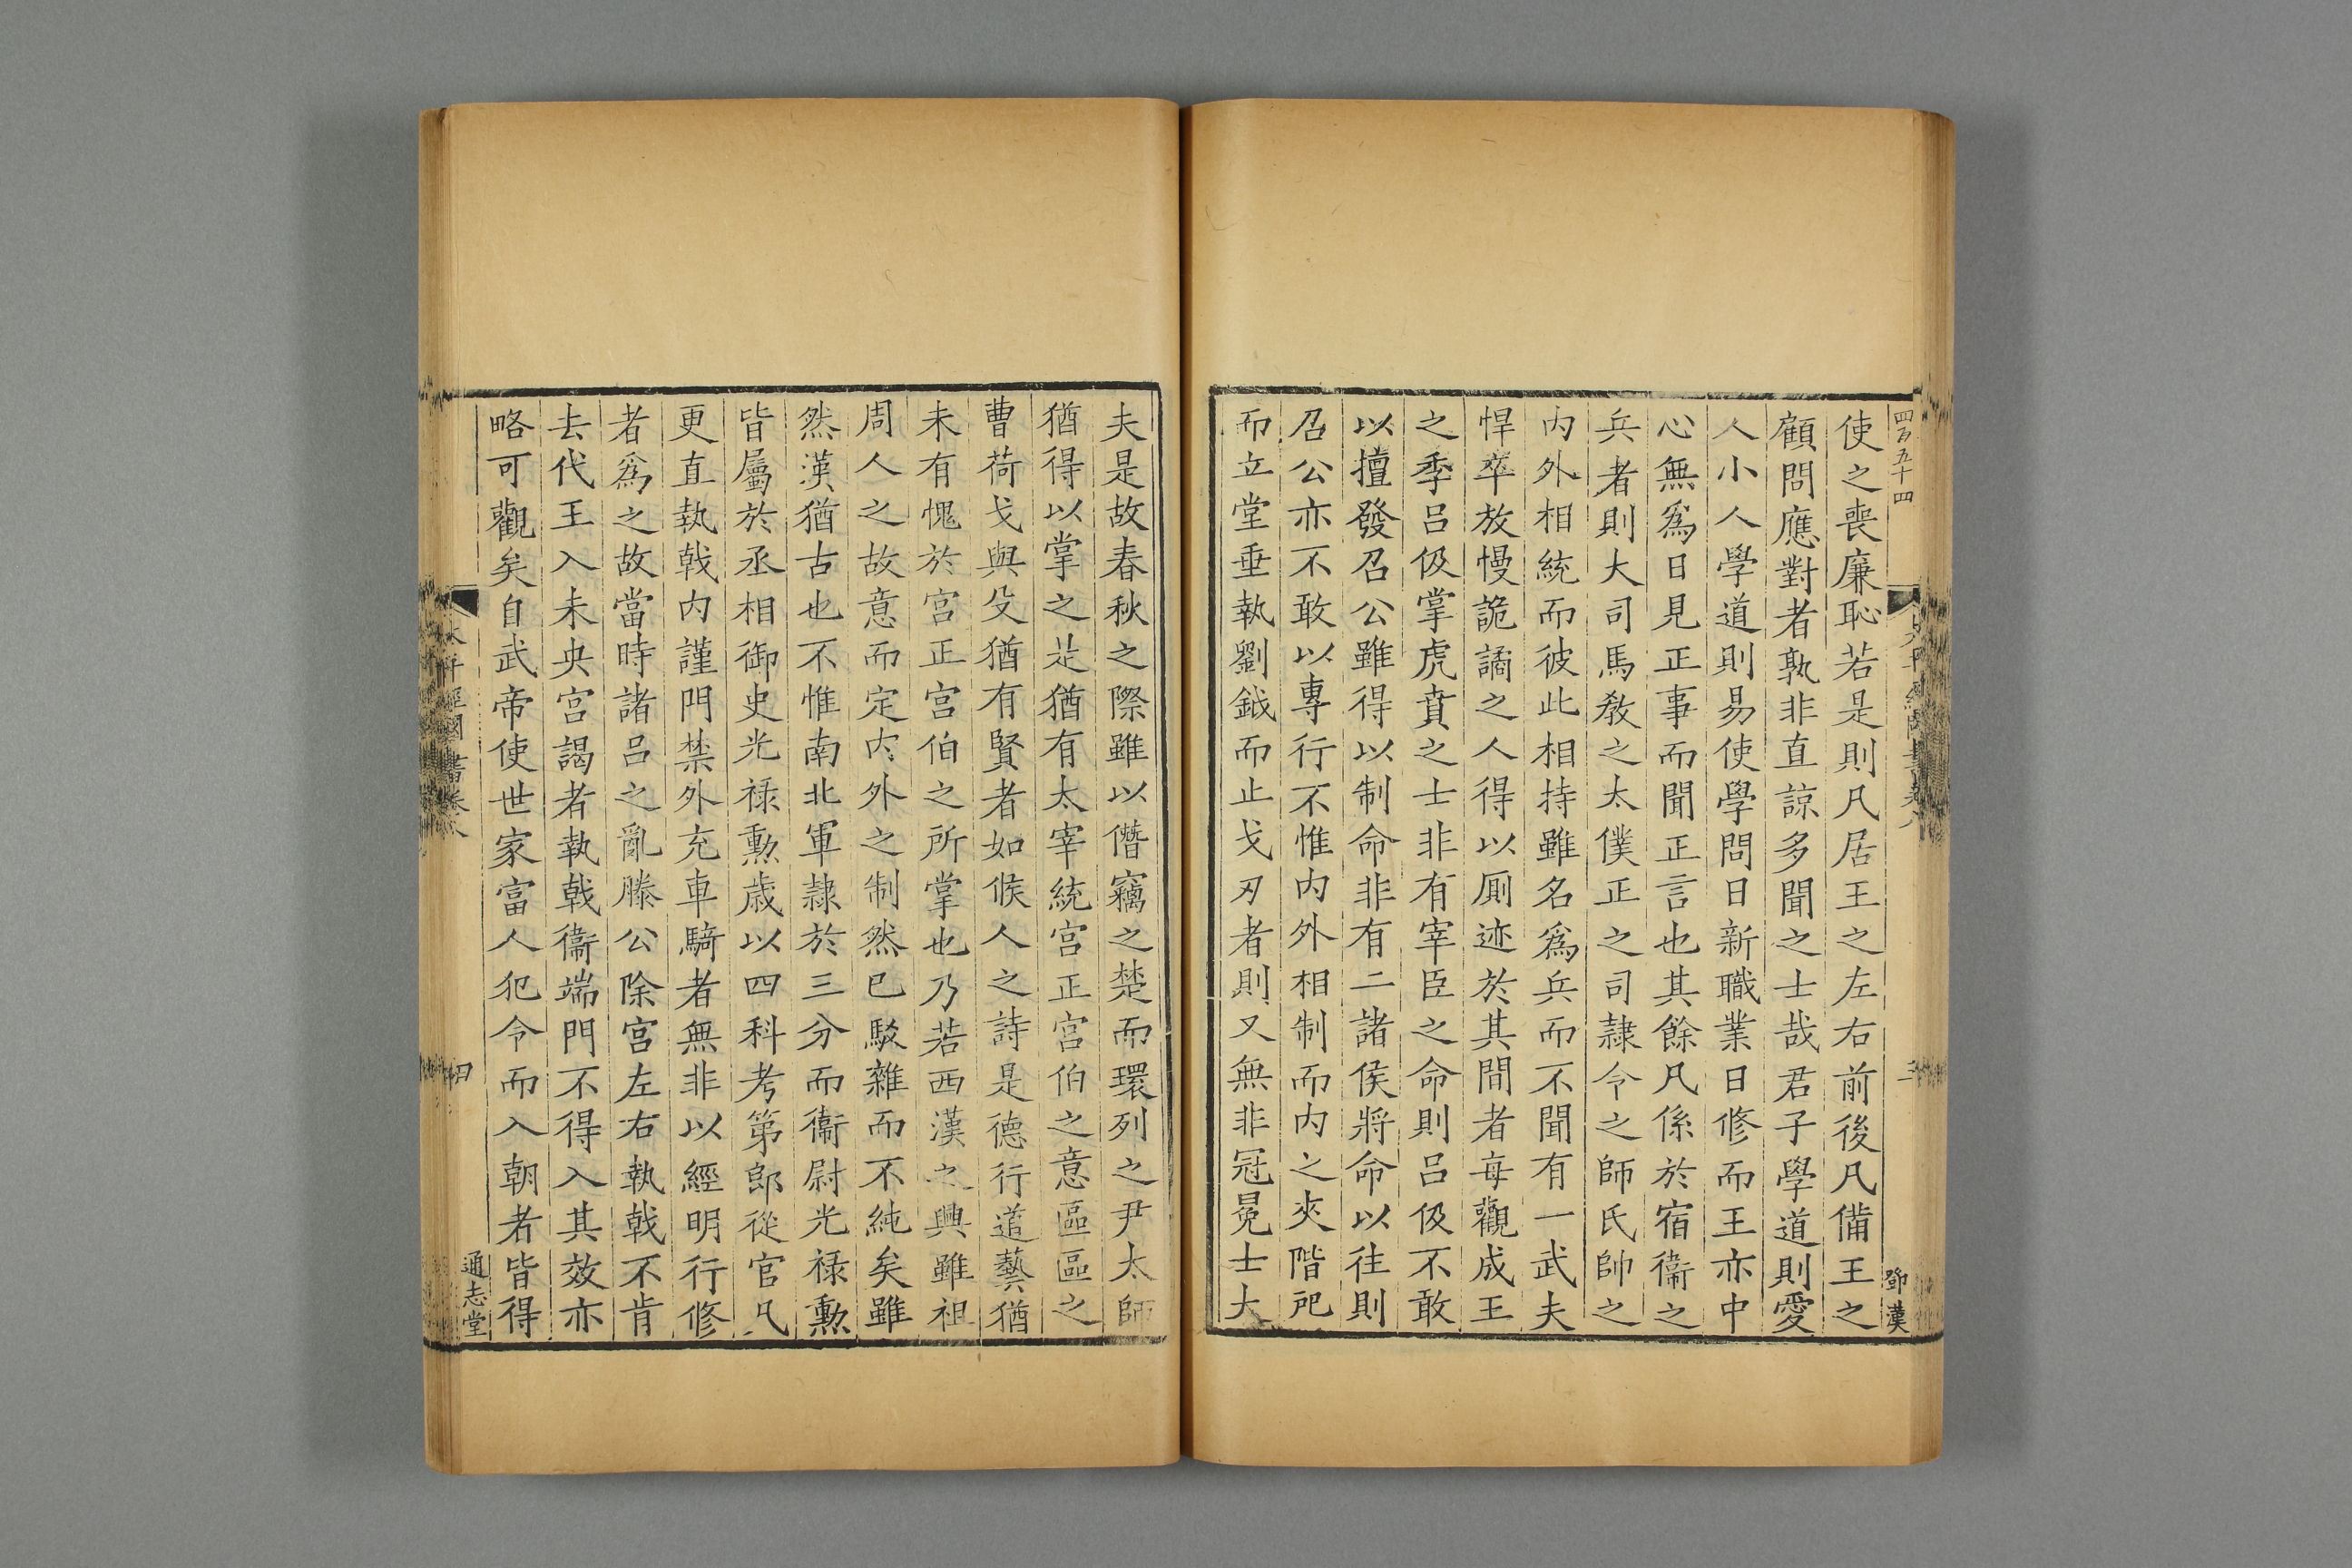 四百五十四
鄧漢
使之喪廉恥若是則凡居王之左右前後凡備王之
顧問應對者孰非直諒多聞之士哉君子學道則愛
人小人學道則易使學問日新職業日修而王亦中
心無爲日見正事而聞正言也其餘凡係於宿衞之
兵者則大司馬敎之太僕正之司隷令之師氏帥之
內外相統而彼此相持雖名爲兵而不聞有一武夫
悍卒放慢詭譎之人得以厠迹於其間者每觀成王
之季呂伋掌虎賁之士非有宰臣之命則呂伋不敢
以擅發召公雖得以制命非有二諸侯將命以往則
召公亦不敢以專行不惟內外相制而內之夾階戺
而立堂垂執劉鉞而止戈刃者則又無非冠冕士大
夫是故春秋之際雖以僭竊之楚而環列之尹太師
猶得以掌之是猶有太宰統宫正宫伯之意區區之
曹荷戈與殳猶有賢者如候人之詩是德行道藝猶
未有愧於宫正宫伯之所掌也乃若西漢之興雖祖
周人之故意而定內外之制然已駁雜而不純矣雖
然漢猶古也不惟南北軍隷於三分而衞尉光禄勲
皆屬於丞相御史光禄勲歲以四科考第郎從官凡
更直執戟內謹門禁外充車騎者無非以經明行修
者爲之故當時諸呂之亂滕公除宫左右執戟不肯
去代王入未央宫謁者執戟衞端門不得入其效亦
略可觀矣自武帝使世家富人犯令而入朝者皆得
經國書卷八
四
通志堂